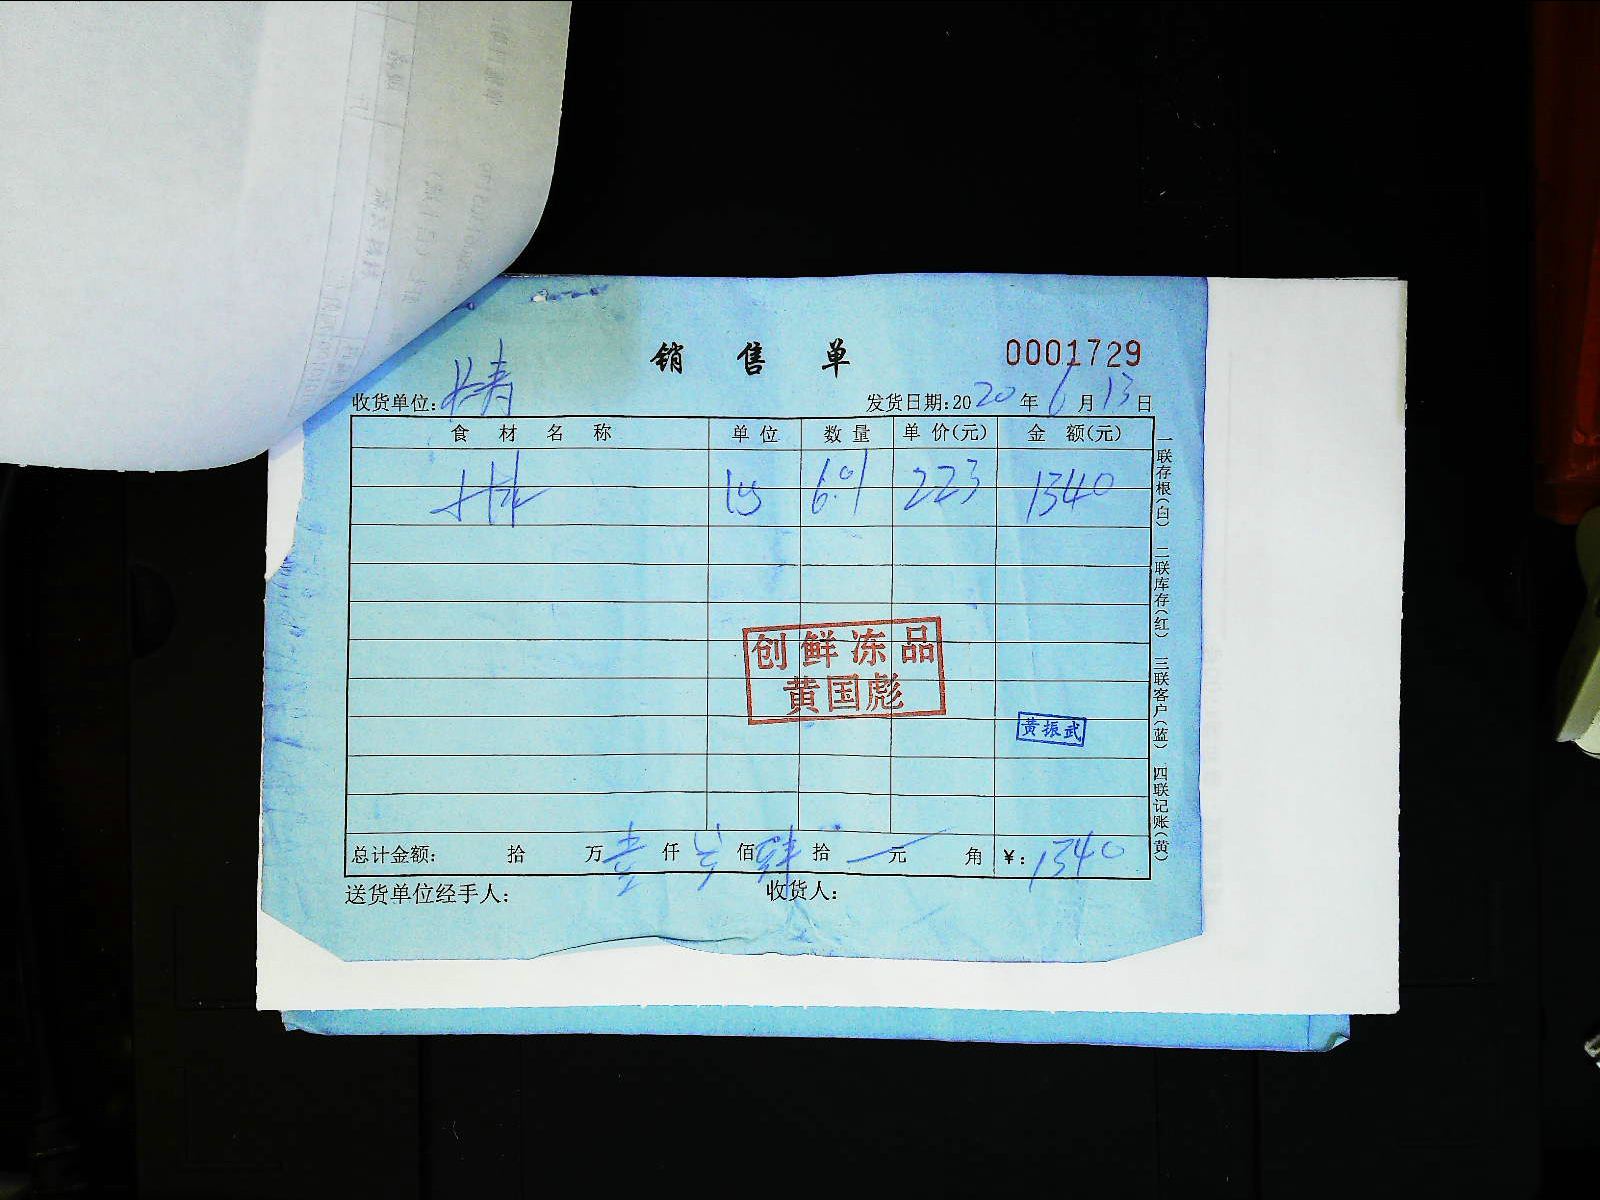 销售单
0001729
收货单位:
发货日期:2020年6月13日
食材名称 单位 数量 单价(元) 金额(元)
223 1340
创鲜冻品
黄国彪
黄振武
总计金额: 拾 万壹仟 佰肆拾 元 角 ¥:1340
送货单位经手人: 收货人:
一联存根(白) 二联库存(红) 三联客户(蓝) 四联记账(黄)